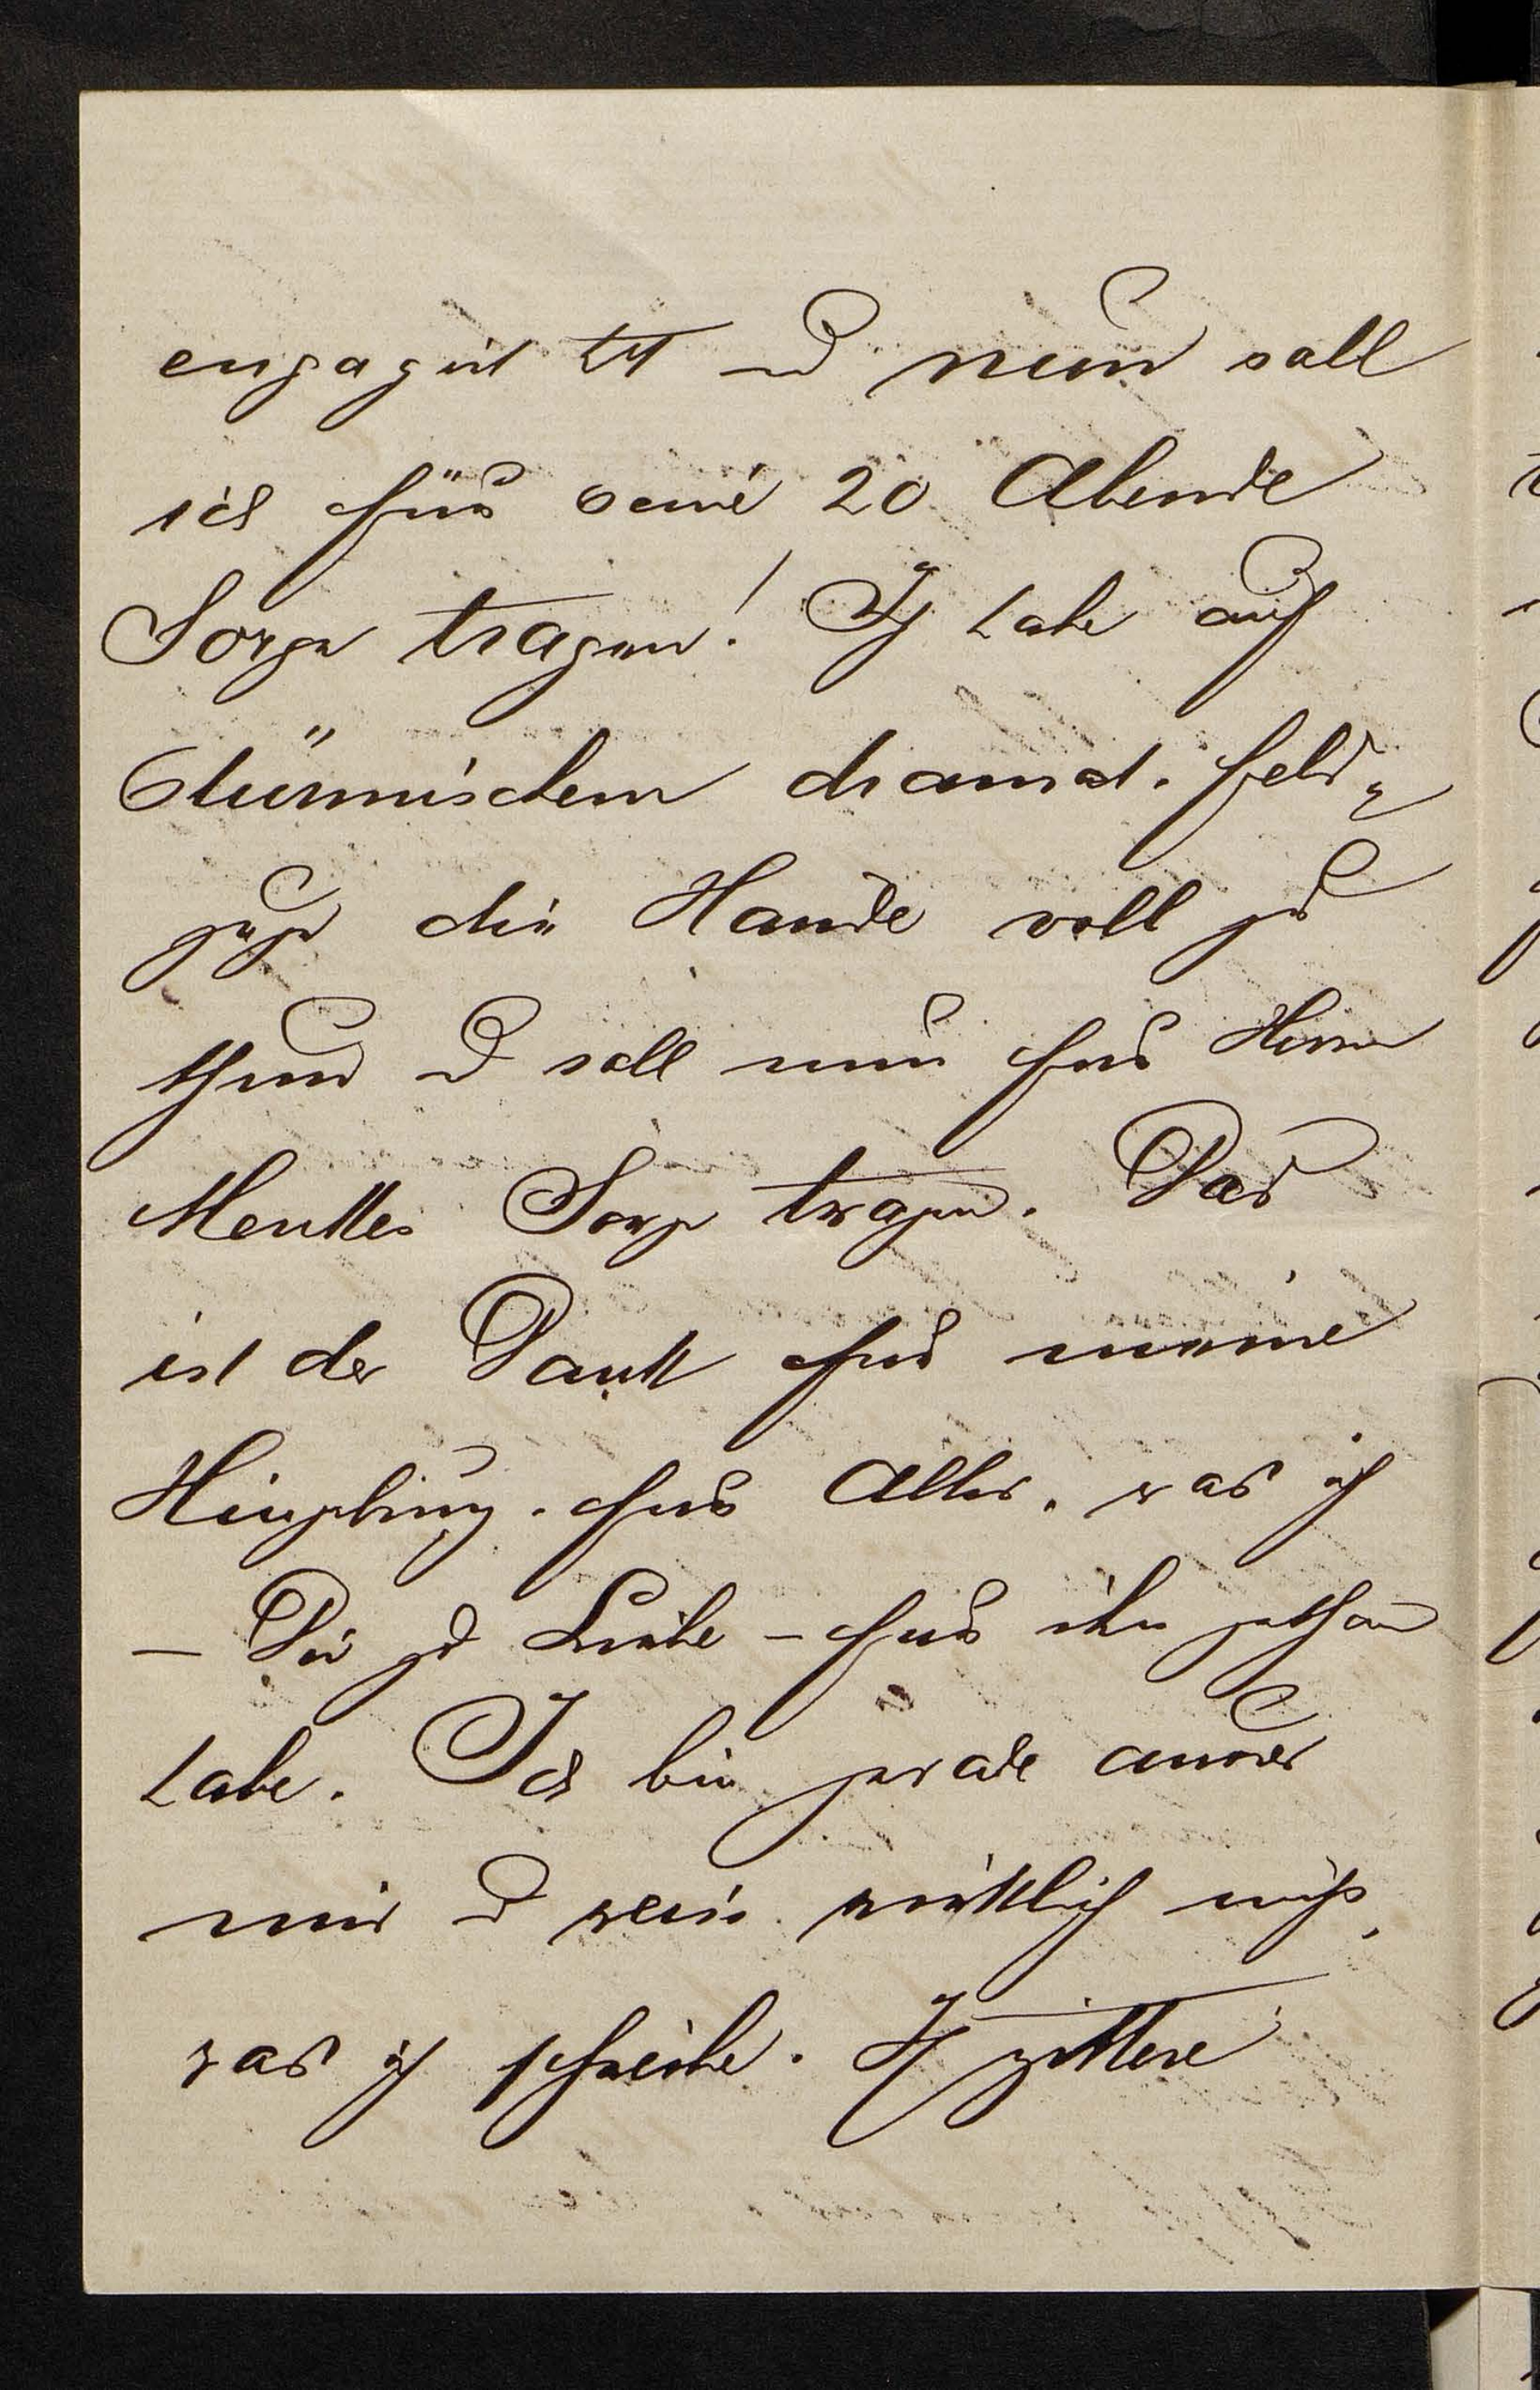 engagirt ist u nun soll
ich für seine 20 Abende
Sorge tragen! Ich habe auf
stürmischem dramat. Feld-
zuge die Hände voll zu
thun u soll nun für Herrn
Sorge tragen. Das
ist der Dank für meine
Hingebung, für Alles, was ich
– Dir zu Liebe – für ihn gethan
habe. Ich bin gerade außer
mir u weiß wirklich nicht,
was ich schreibe. Ich zittere